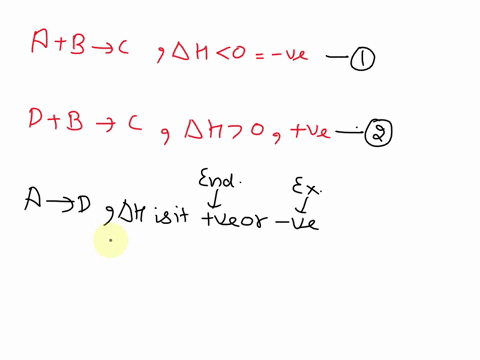 A+B → C , ΔH < 0 = -ve — ①
D+B → C , ΔH > 0 , +ve — ②
End. Ex.
A → D , ΔH is it +ve or -ve